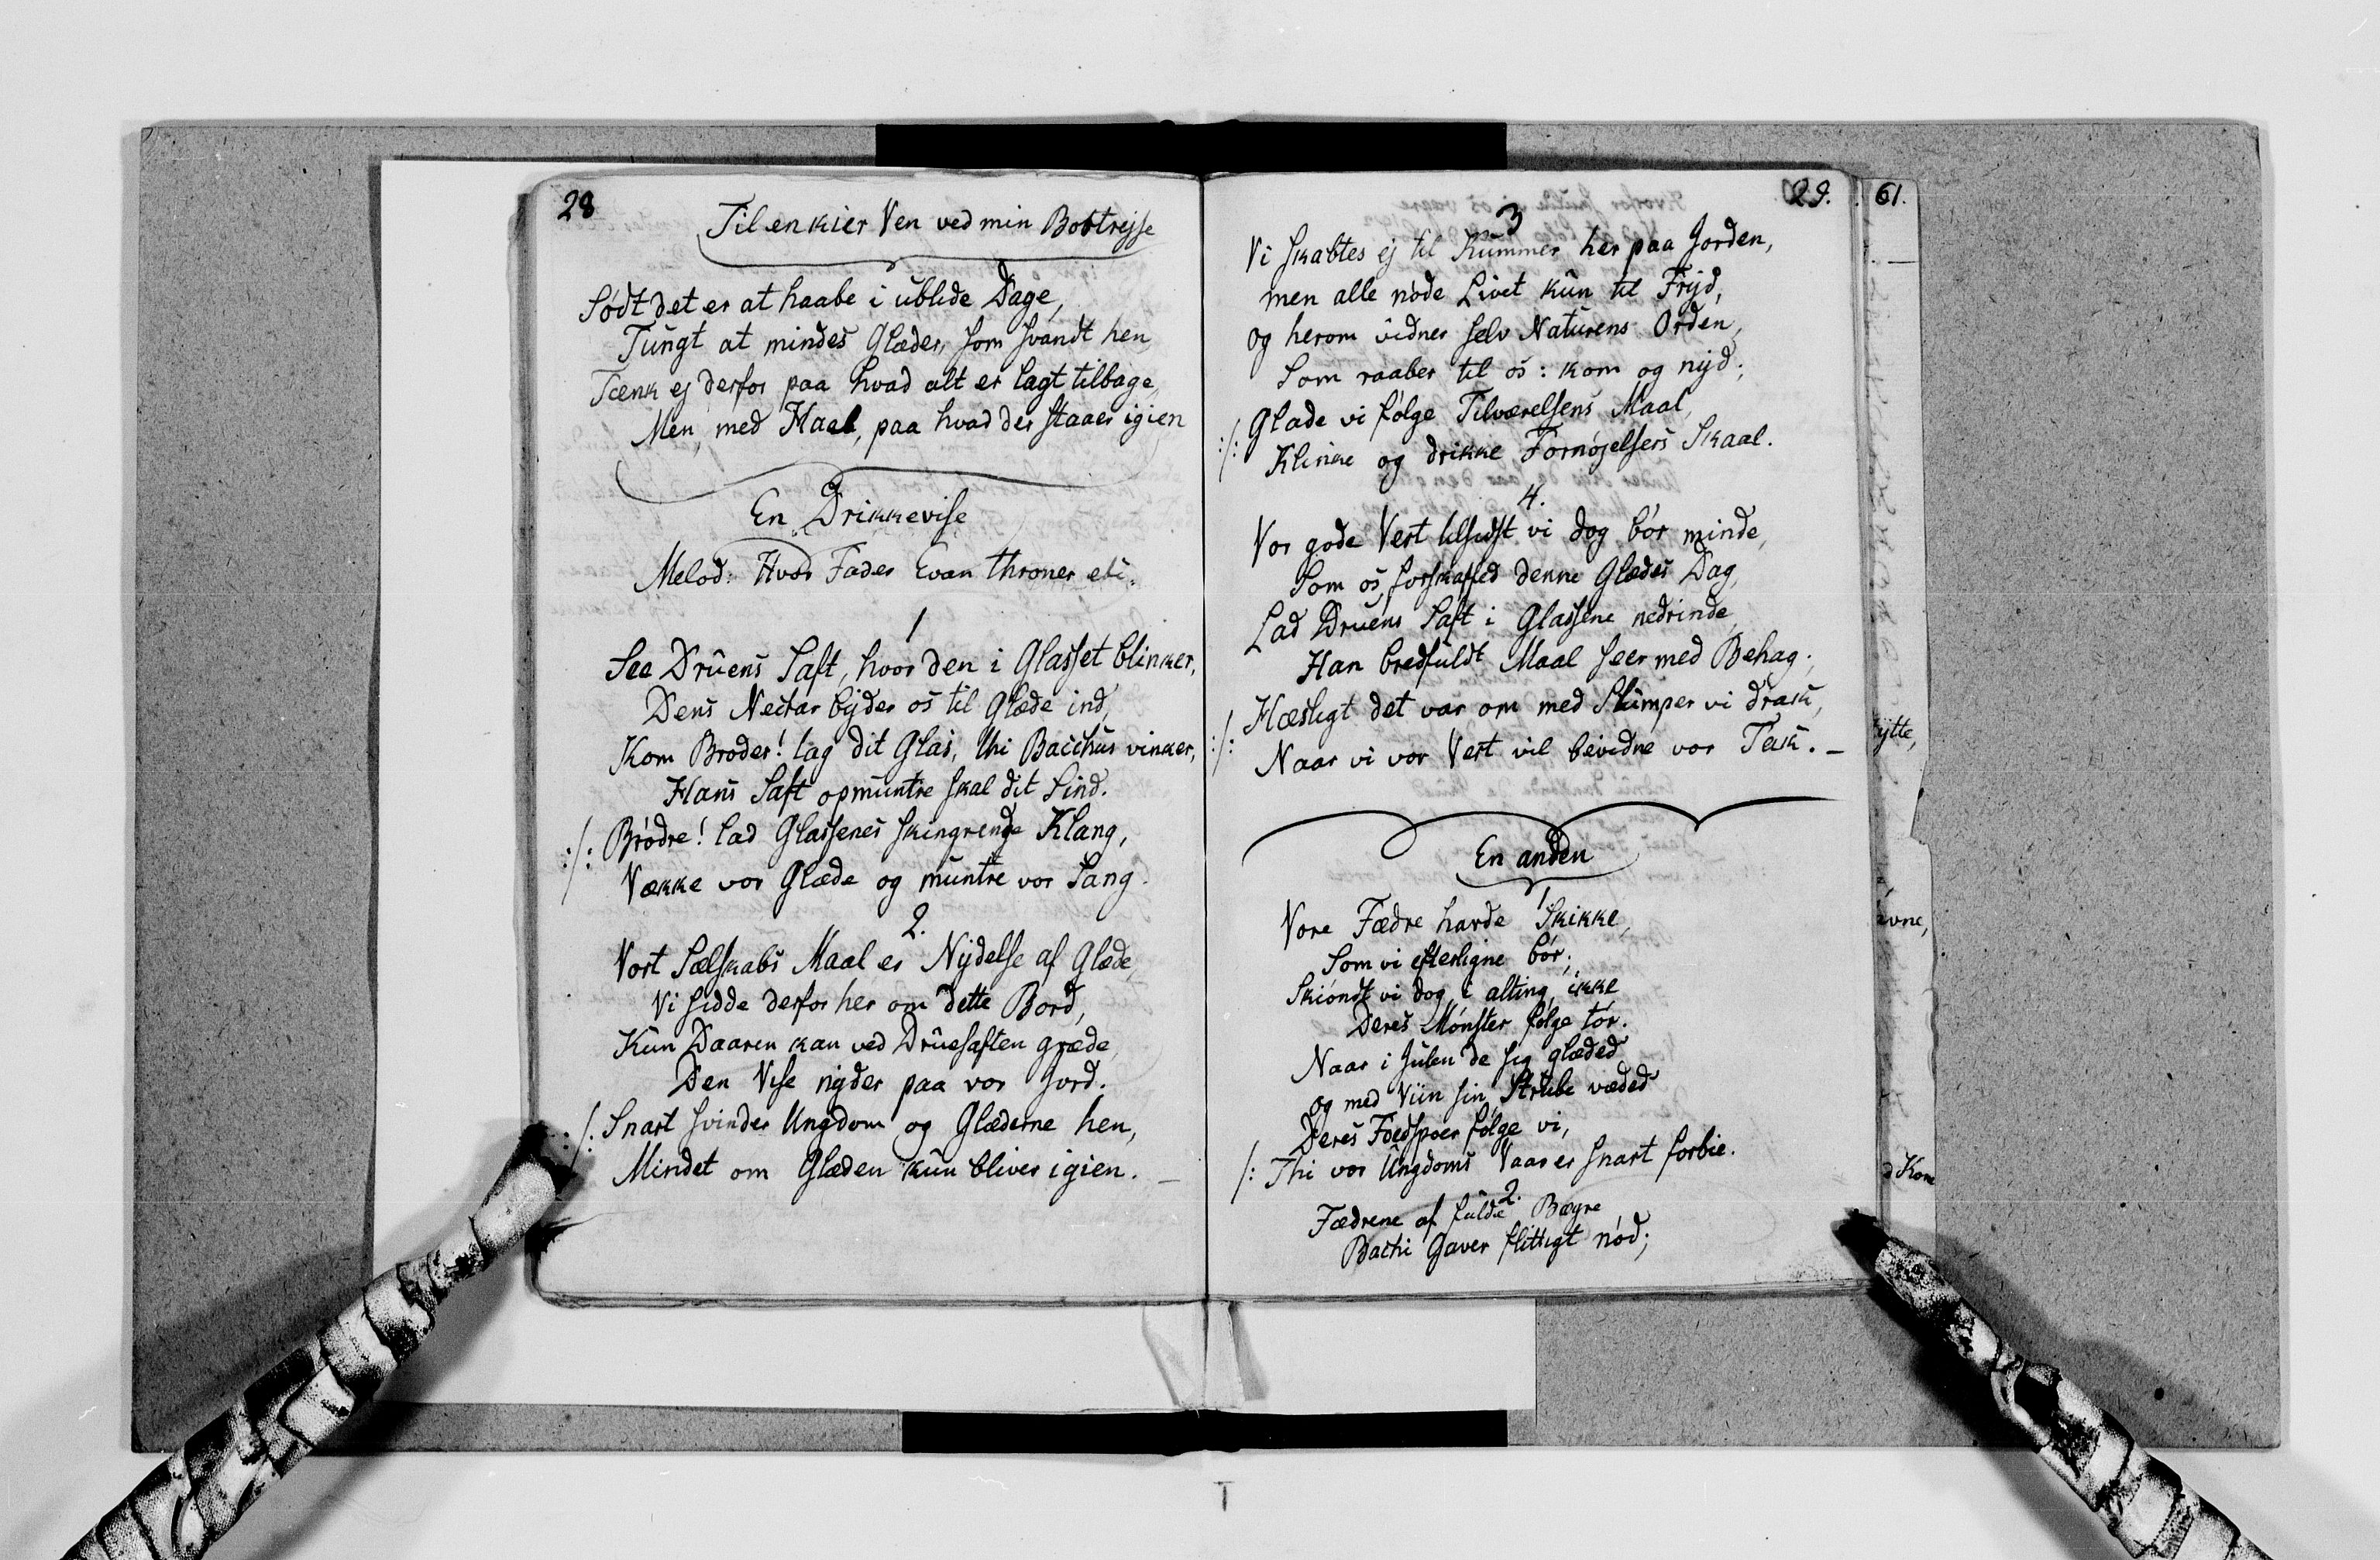 28
Til en kier Ven ved min Bortrejse
Södt det er at haabe i ublide Dage,
Tungt at mindes Glæder, som svandt hen
Tænk ej derfor paa hvad alt er lagt tilbage,
Men, med Haab, paa hvad der staaer igien
En Drikkevise
Melod: Hvor Fader Evan throner etc.
1
See Druens Saft, hvor den i Glasset blinker,
Dens Nectar byder os til Glæde ind,
Kom Broder! tag dit Glas, thi Bacchus vinker,
Hans Saft opmuntre skal dit Sind.
:/: Brödre! lad Glassenes skingrende Klang,
Vække vor Glæde og muntre vor Sang.
2.
Vort Sælskabs Maal er Nydelse af Glæde,
Vi sidde derfor her om dette Bord,
Kun Daaren kan ved Druesaften græde,
Den Vise nyder paa vor Jord.
:/: Snart svinder Ungdom og Glæderne hen,
Mindet om Glæden kun bliver igien. —
29.
3
Vi skabtes ej til Kummer her paa Jorden,
men alle nöde Livet kun til Fryd,
og herom vidner selv Naturens Orden,
Som raaber til os: kom og nyd;
:/: Glade vi fölge Tilværelsens Maal,
Klinke og drikke Fornöjelsers Skaal.
4.
Vor gode Vert tilsidst vi dog bör minde,
Som os forskaffed denne Glædes Dag,
Lad Druens Saft i Glassene nedrinde,
Han bredfuldt Maal seer med Behag.,
:/: Hæsligt det var om med Slumper vi drak,
Naar vi vor Vert vil bevidne vor Tak. —
En anden
1
Vore Fædre havde Skikke,
Som vi efterligne bör;
Skiöndt vi dog, i alting, ikke
Deres Mönster fölge tör.
Naar i Julen de sig glæded
og med Viin sin Strube væded
Deres Foedspoer fölge vi,
/: Thi vor Ungdoms Vaar er snart forbie.
2.
Fædrene af fulde Bægre
Bachi Gaver flittigt nöd;
61.
ytte,
vne,
d Kom